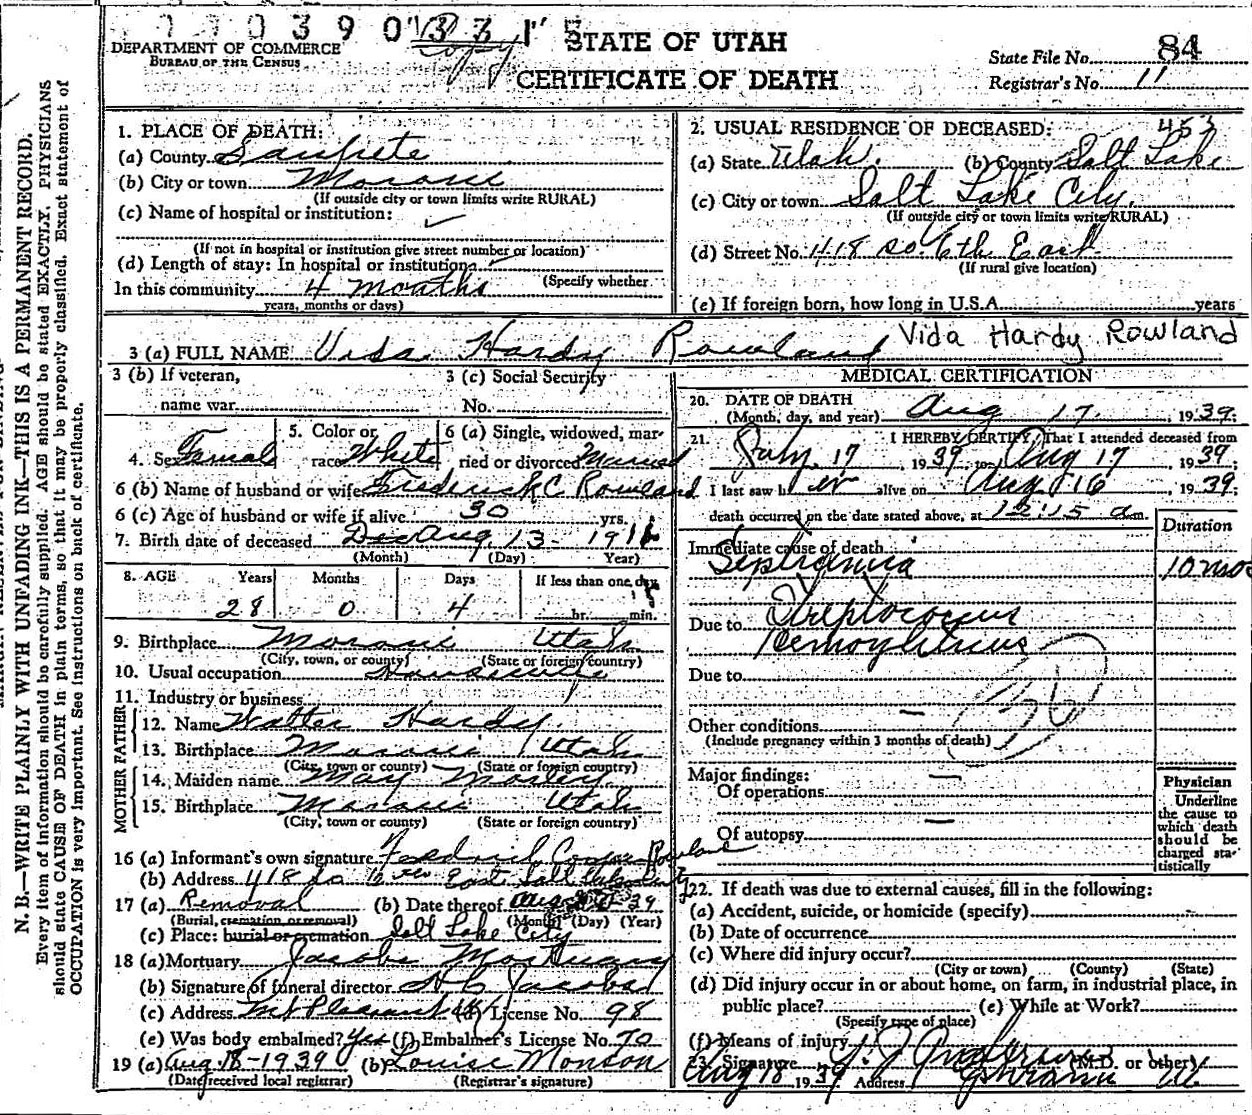 STATE OF UTAH
CERTIFICATE OF DEATH
DEPARTMENT OF COMMERCE
BUREAU OF THE CENSUS
Copy
State File No. 84
Registrar's No. 11
N. B.—WRITE PLAINLY WITH UNFADING INK—THIS IS A PERMANENT RECORD.
Every item of information should be carefully supplied. AGE should be stated EXACTLY. PHYSICIANS
should state CAUSE OF DEATH in plain terms, so that it may be properly classified. Exact statement of
OCCUPATION is very important. See instructions on back of certificate.
1. PLACE OF DEATH:
(a) County Sanpete
(b) City or town Moroni
(If outside city or town limits write RURAL)
(c) Name of hospital or institution:
(If not in hospital or institution give street number or location)
(d) Length of stay: In hospital or institution
(Specify whether
In this community 4 months
years, months or days)
2. USUAL RESIDENCE OF DECEASED: 453
(a) State Utah. (b) County Salt Lake
(c) City or town Salt Lake City.
(If outside city or town limits write RURAL)
(d) Street No. 418 So. 6th East.
(If rural give location)
(e) If foreign born, how long in U.S.A. years
3 (a) FULL NAME Vida Hardy Rowland Vida Hardy Rowland
3 (b) If veteran,
name war
3 (c) Social Security
No.
4. Sex Female
5. Color or
race White
6 (a) Single, widowed, mar-
ried or divorced Married
6 (b) Name of husband or wife Frederick C Rowland
6 (c) Age of husband or wife if alive 30 yrs.
7. Birth date of deceased Aug 13 1911
(Month) (Day) Year)
8. AGE Years Months Days If less than one day
28 0 4 hr. min.
9. Birthplace Moroni Utah
(City, town, or county) (State or foreign country)
10. Usual occupation Housewife
11. Industry or business
FATHER
12. Name Walter Hardy
13. Birthplace Moroni Utah
(City, town or county) (State or foreign country)
MOTHER
14. Maiden name May Morley
15. Birthplace Moroni Utah
(City, town or county) (State or foreign country)
16 (a) Informant's own signature Frederick Cooper Rowland
(b) Address 418 So 6 East Salt Lake City
17 (a) Removal (b) Date thereof Aug 39
(Burial, cremation or removal) (Month) (Day) (Year)
(c) Place: burial or cremation Salt Lake City
18 (a) Mortuary Jacobs Mortuary
(b) Signature of funeral director Jacobs
(c) Address Mt Pleasant (d) License No. 98
(e) Was body embalmed? Yes (f) Embalmer's License No. 70
19 (a) Aug. 18-1939 (b) Louise Monson
(Date received local registrar) (Registrar's signature)
MEDICAL CERTIFICATION
20. DATE OF DEATH
(Month, day, and year) Aug 17, 1939;
21. I HEREBY CERTIFY, That I attended deceased from
July 17, 1939 to Aug 17, 1939;
I last saw her alive on Aug 16, 1939;
death occurred on the date stated above, at 12:15 a m.
Duration
Immediate cause of death
Septicemia 10 mos
Due to Streptococcus
Hemolyticus
Due to
Other conditions —
(Include pregnancy within 3 months of death)
Major findings:
Of operations —
Of autopsy —
Physician
Underline
the cause to
which death
should be
charged sta-
tistically
22. If death was due to external causes, fill in the following:
(a) Accident, suicide, or homicide (specify)
(b) Date of occurrence
(c) Where did injury occur?
(City or town) (County) (State)
(d) Did injury occur in or about home, on farm, in industrial place, in
public place? (e) While at Work?
(Specify type of place)
(f) Means of injury
23. Signature Anderson (M.D. or other)
Aug 18 1939 Address Ephraim Ut.